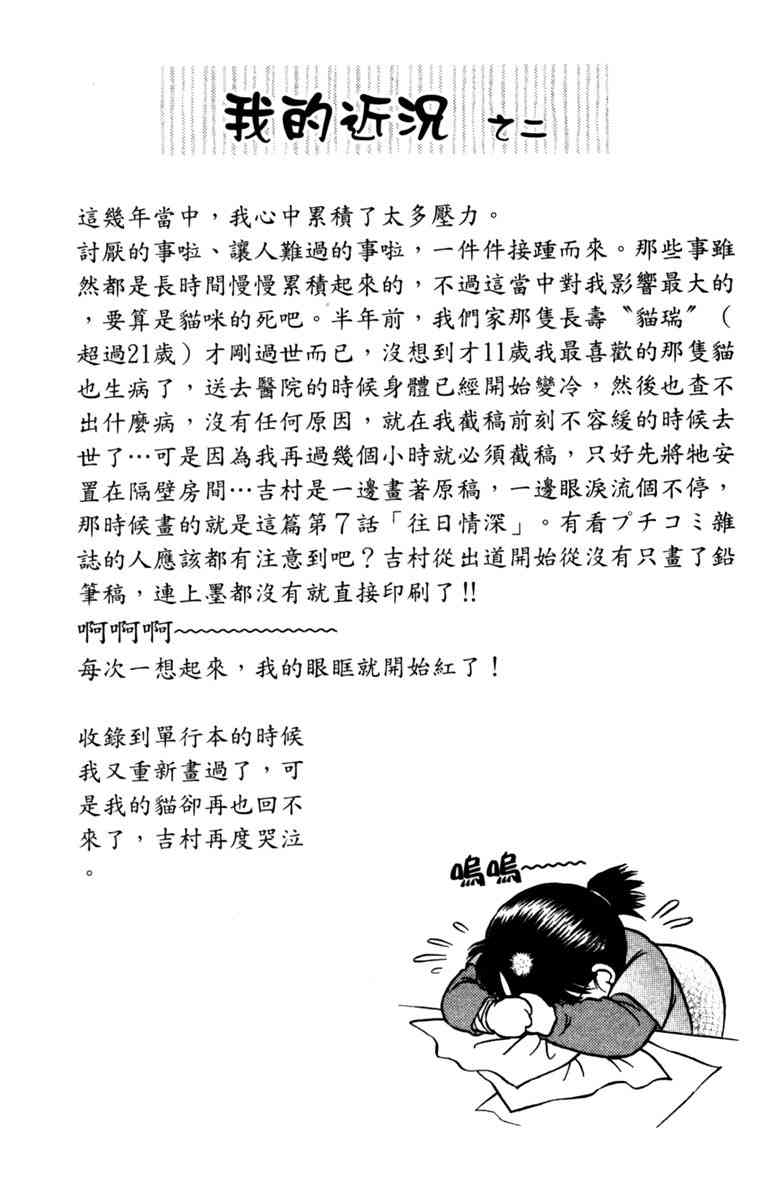 我的近況 之二
這幾年當中，我心中累積了太多壓力。
討厭的事啦、讓人難過的事啦，一件件接踵而來。那些事雖
然都是長時間慢慢累積起來的，不過這當中對我影響最大的
，要算是貓咪的死吧。半年前，我們家那隻長壽〝貓瑞〞（
超過21歲）才剛過世而已，沒想到才11歲我最喜歡的那隻貓
也生病了，送去醫院的時候身體已經開始變冷，然後也查不
出什麼病，沒有任何原因，就在我截稿前刻不容緩的時候去
世了…可是因為我再過幾個小時就必須截稿，只好先將牠安
置在隔壁房間…吉村是一邊畫著原稿，一邊眼淚流個不停，
那時候畫的就是這篇第７話「往日情深」。有看プチコミ雜
誌的人應該都有注意到吧？吉村從出道開始從沒有只畫了鉛
筆稿，連上墨都沒有就直接印刷了!!
啊啊啊~~~~~~~~
每次一想起來，我的眼眶就開始紅了！
收錄到單行本的時候
我又重新畫過了，可
是我的貓卻再也回不
來了，吉村再度哭泣
。
嗚嗚~~~~